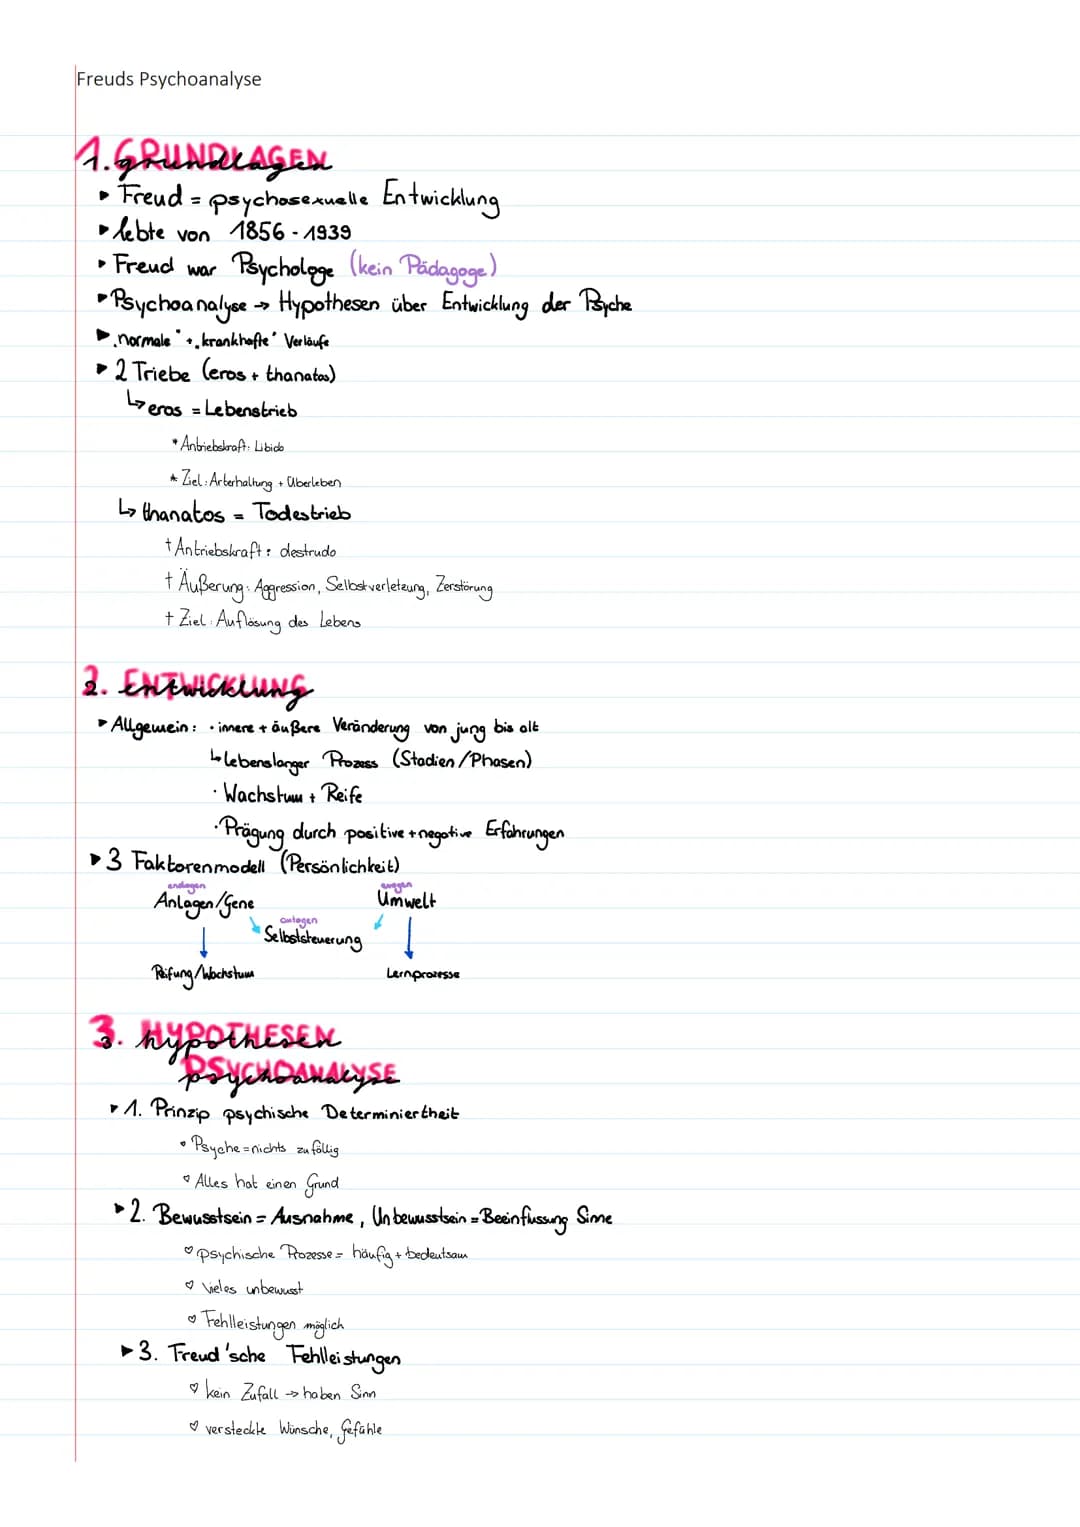 Freuds Psychoanalyse
1. GRUNDLAGEN
▸ Freud = psychosexuelle Entwicklung
▸ lebte von 1856 - 1939
▸ Freud war Psychologe (kein Pädagoge)
▸ Psychoanalyse → Hypothesen über Entwicklung der Psyche
▸ „normale" + „krankhafte" Verläufe
▸ 2 Triebe (eros + thanatos)
↳ eros = Lebenstrieb
* Antriebskraft: Libido
* Ziel: Arterhaltung + Überleben
↳ thanatos = Todestrieb
† Antriebskraft: destrudo
† Äußerung: Aggression, Selbstverletzung, Zerstörung
† Ziel: Auflösung des Lebens
2. ENTWICKLUNG
▸ Allgemein: · innere + äußere Veränderung von jung bis alt
↳ lebenslanger Prozess (Stadien/Phasen)
· Wachstum + Reife
· Prägung durch positive + negative Erfahrungen
▸ 3 Faktorenmodell (Persönlichkeit)
endogen exogen
Anlagen/Gene Umwelt
autogen
Selbststeuerung
Reifung/Wachstum Lernprozesse
3. HYPOTHESEN
PSYCHOANALYSE
▸ 1. Prinzip psychische Determiniertheit
♡ Psyche = nichts zufällig
♡ Alles hat einen Grund
▸ 2. Bewusstsein = Ausnahme, Unbewusstsein = Beeinflussung Sinne
♡ psychische Prozesse = häufig + bedeutsam
♡ Vieles unbewusst
♡ Fehlleistungen möglich
▸ 3. Freud'sche Fehlleistungen
♡ kein Zufall → haben Sinn
♡ versteckte Wünsche, Gefühle